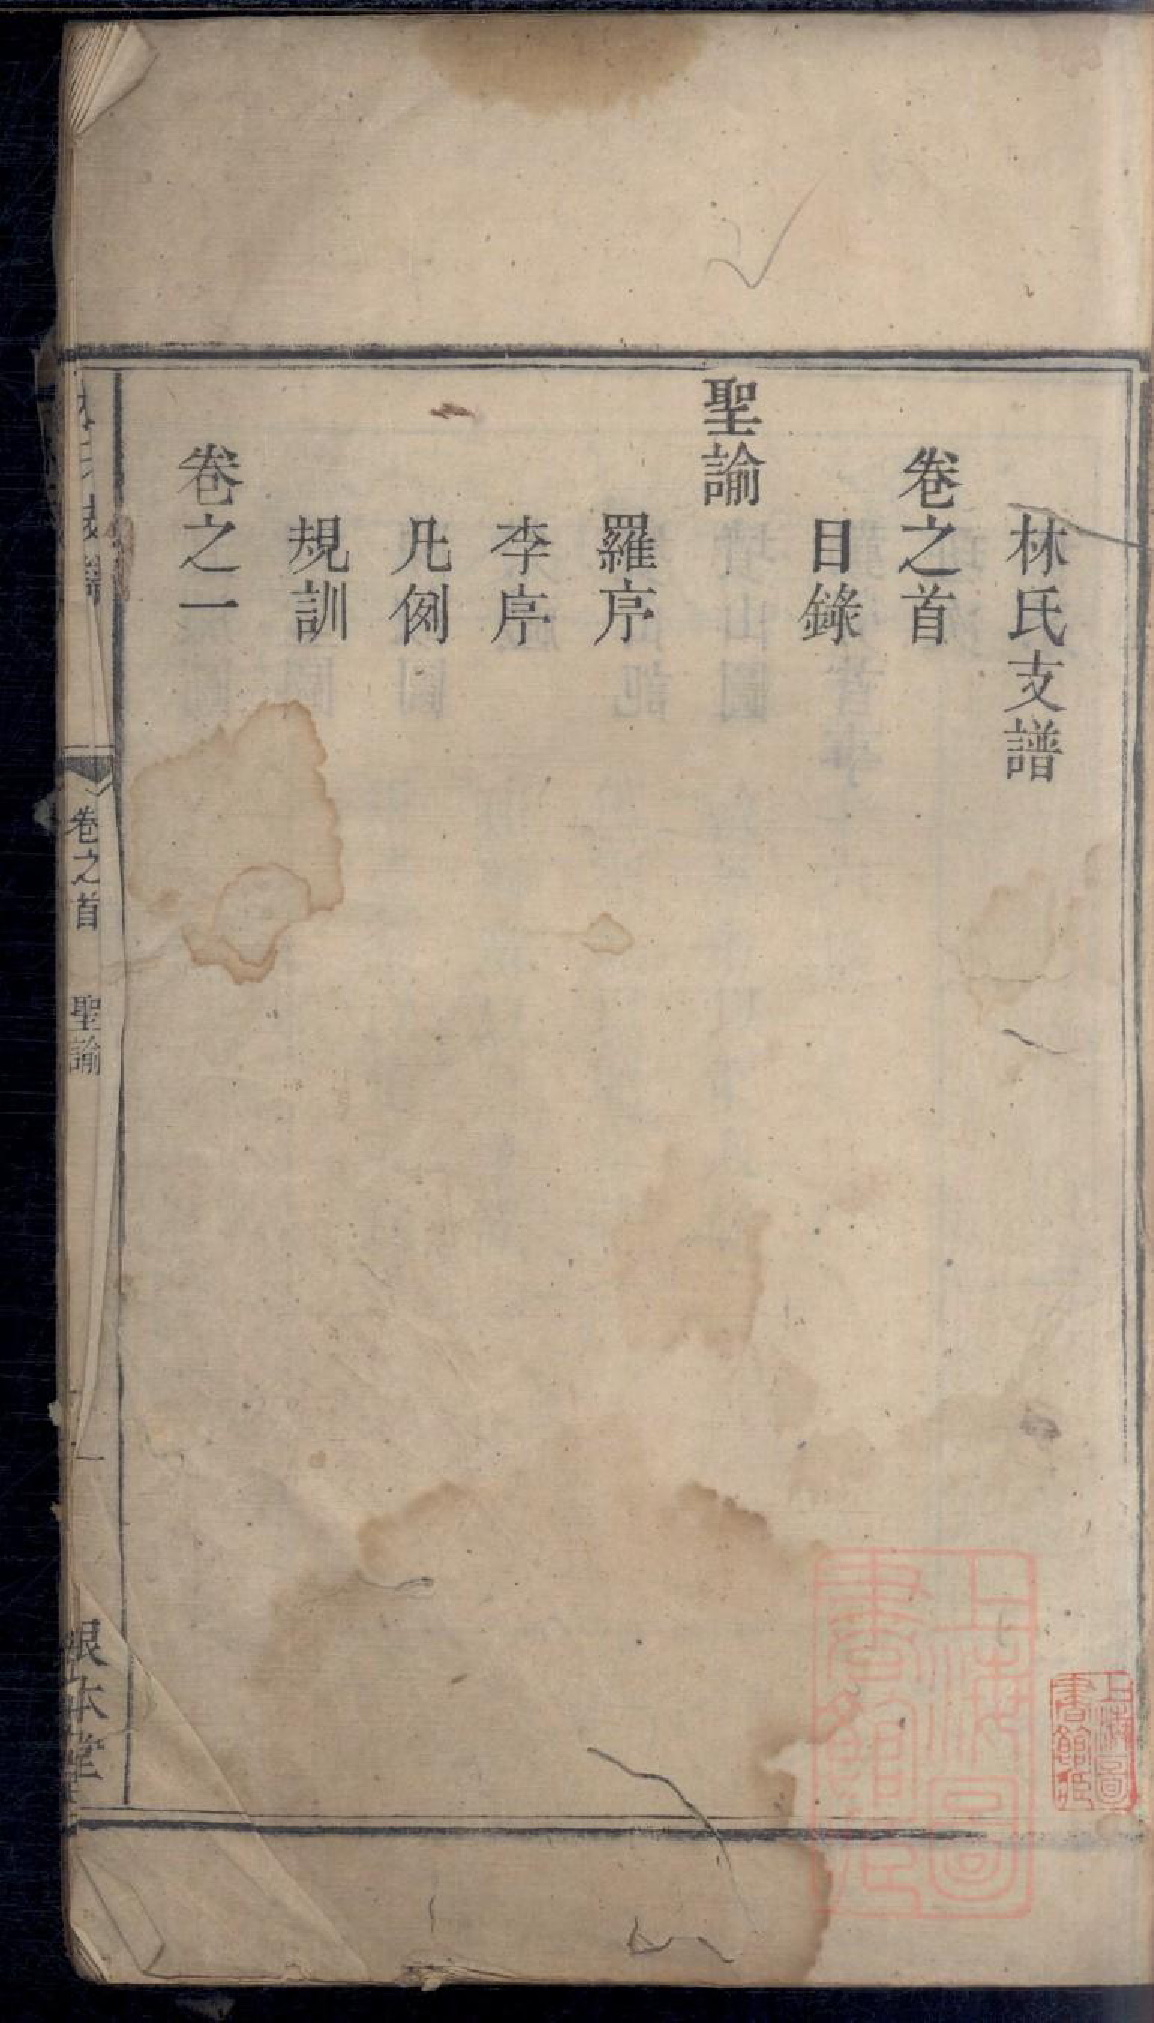 林氏支譜
卷之首
目錄
聖諭
羅序
李序
凡例
規訓
卷之一
卷之首 聖諭
一
根本堂
上海圖書館藏
上海圖書館藏